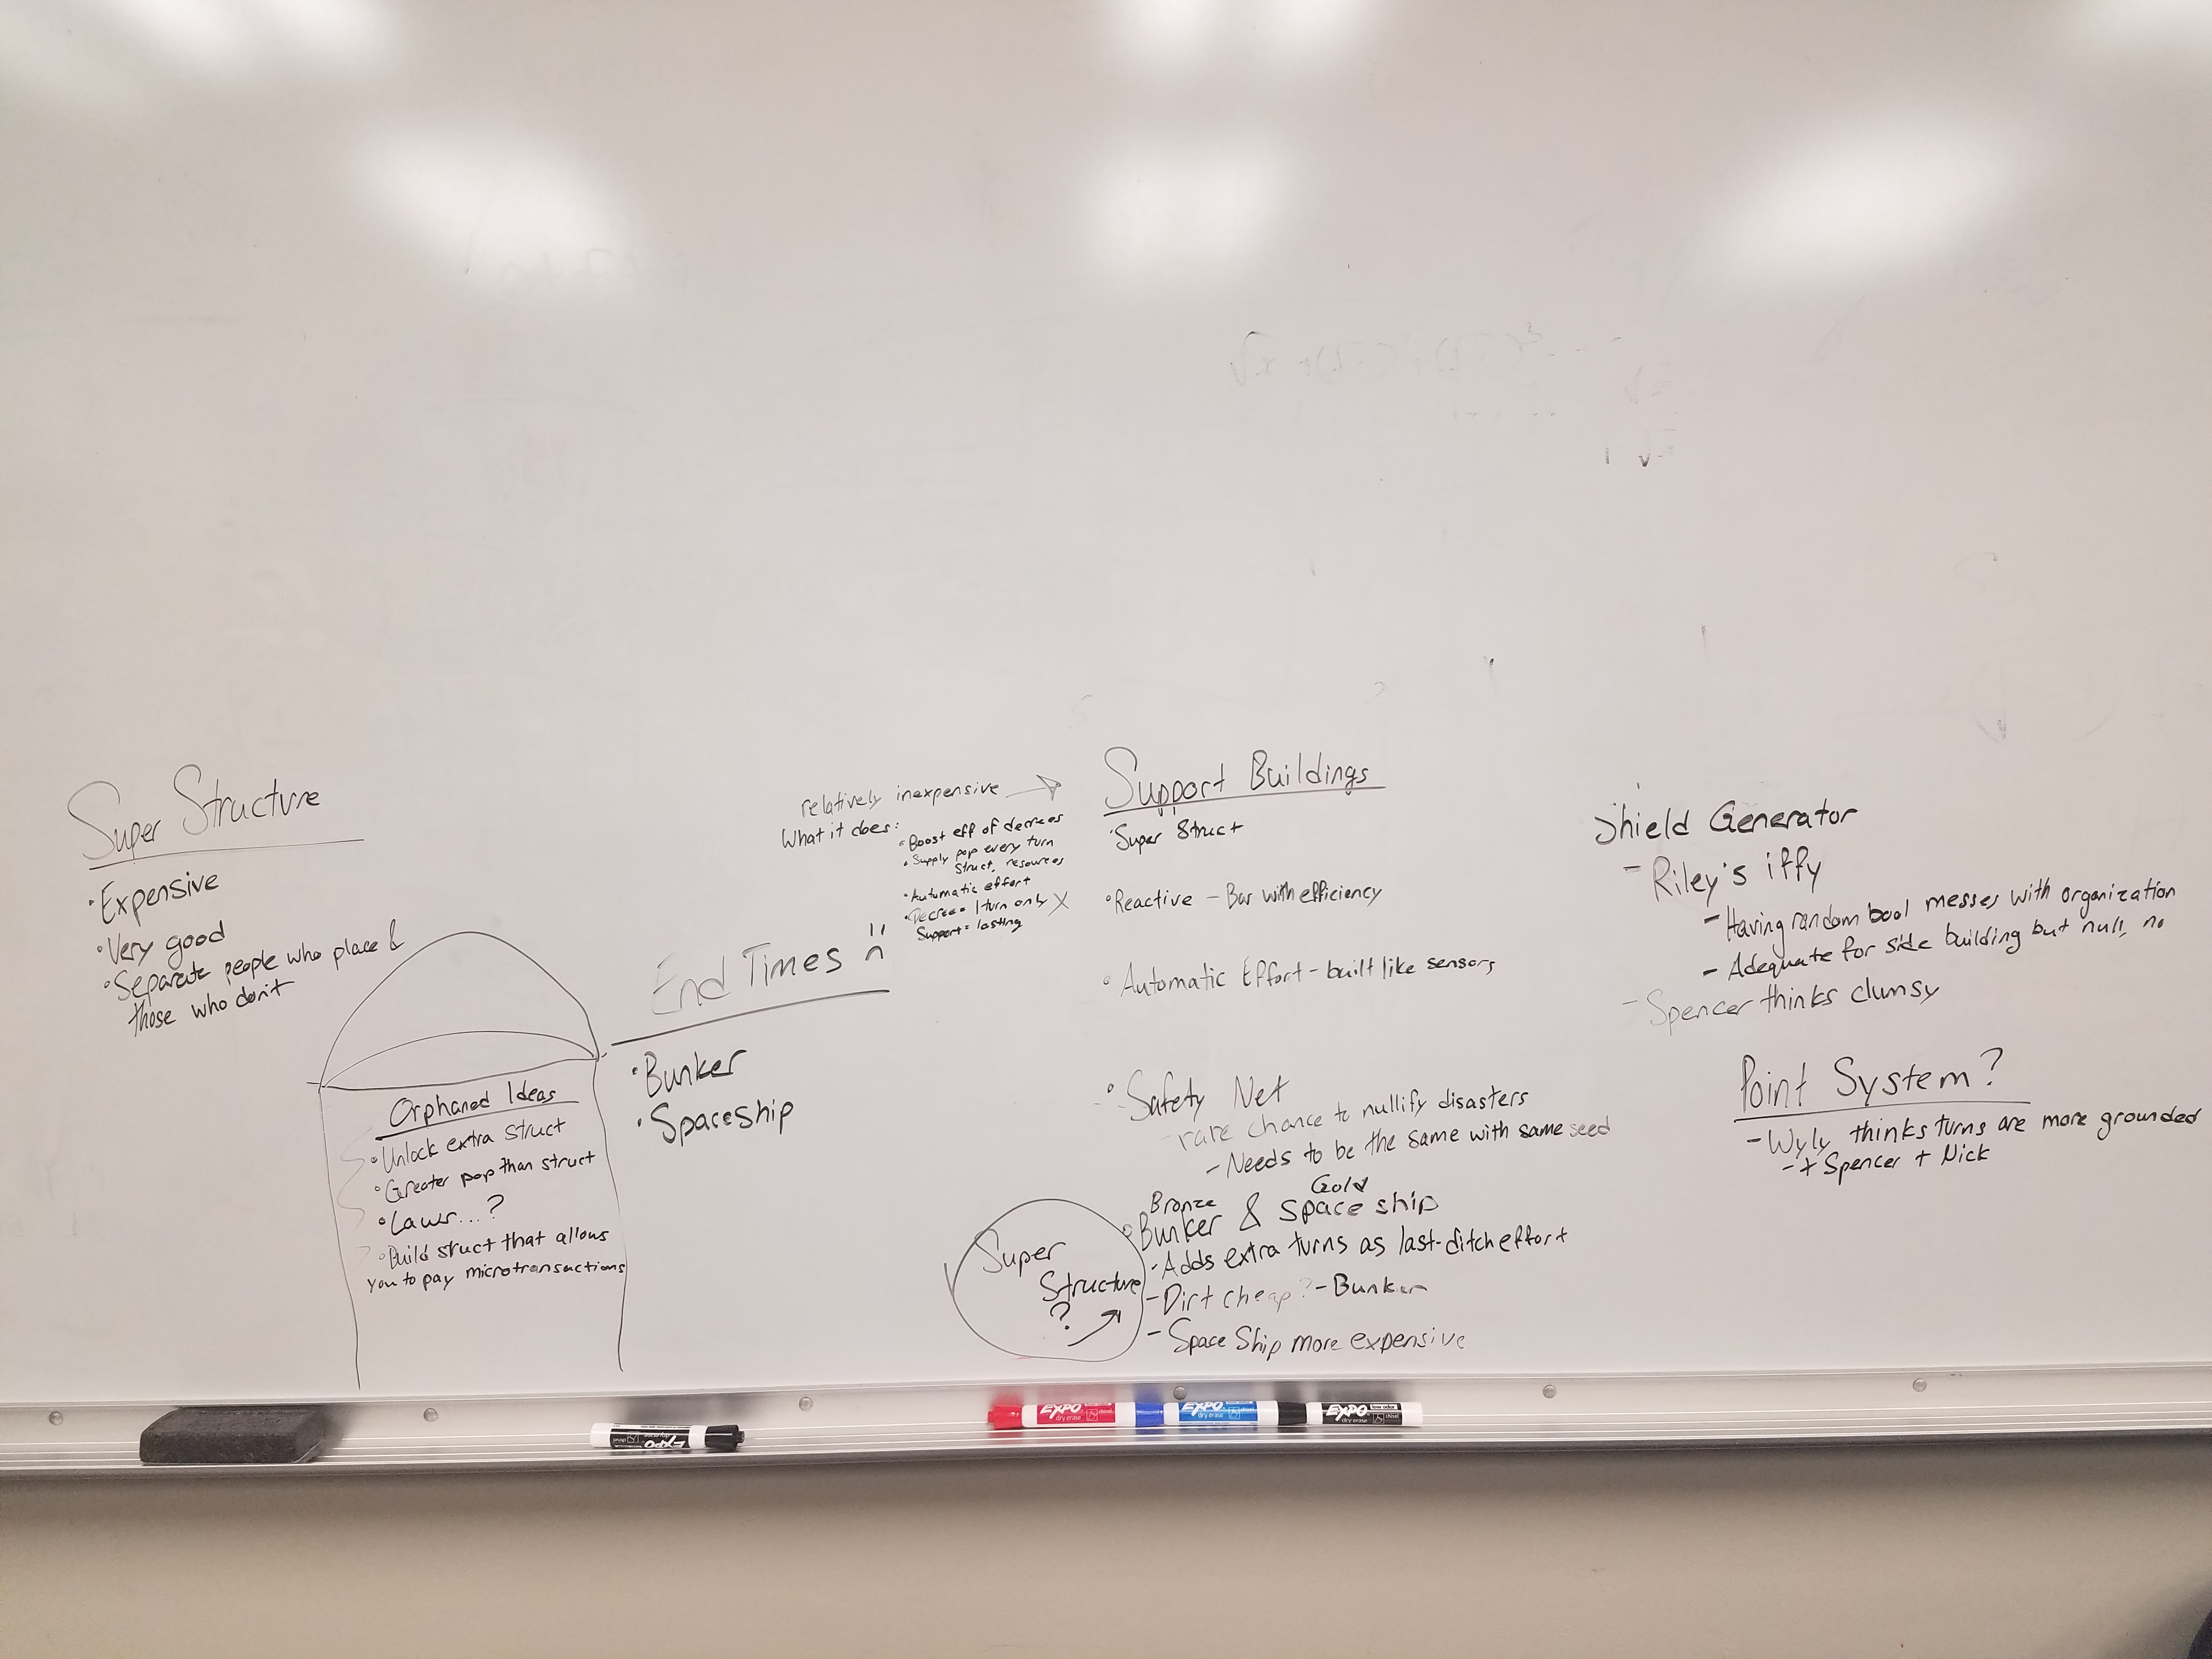 Super Structure
• Expensive
• Very good
• Separate people who place &
those who don't
Orphaned Ideas
• Unlock extra struct
• Greater pop than struct
• Laws...?
• Build struct that allows
you to pay microtransactions
End Times
• Bunker
• Spaceship
relatively inexpensive
What it does:
• Boost eff of decrees
• Supply pop every turn
struct, resources
• Automatic effort
• Decree = 1 turn only X
Support = lasting
Support Buildings
• Super Struct
• Reactive - Bar with efficiency
• Automatic Effort - built like sensors
• Safety Net
- rare chance to nullify disasters
- Needs to be the same with same seed
Bronze Gold
• Bunker & space ship
- Adds extra turns as last-ditch effort
- Dirt cheap? - Bunker
- Space Ship more expensive
Super
Structure
?
Shield Generator
- Riley's iffy
- Having random bool messes with organization
- Adequate for side building but null, no
- Spencer thinks clumsy
Point System?
- Wyly thinks turns are more grounded
- + Spencer + Nick
EXPO
dry erase
chisel
EXPO
dry erase
chisel
EXPO
dry erase
chisel
EXPO
dry erase
chisel